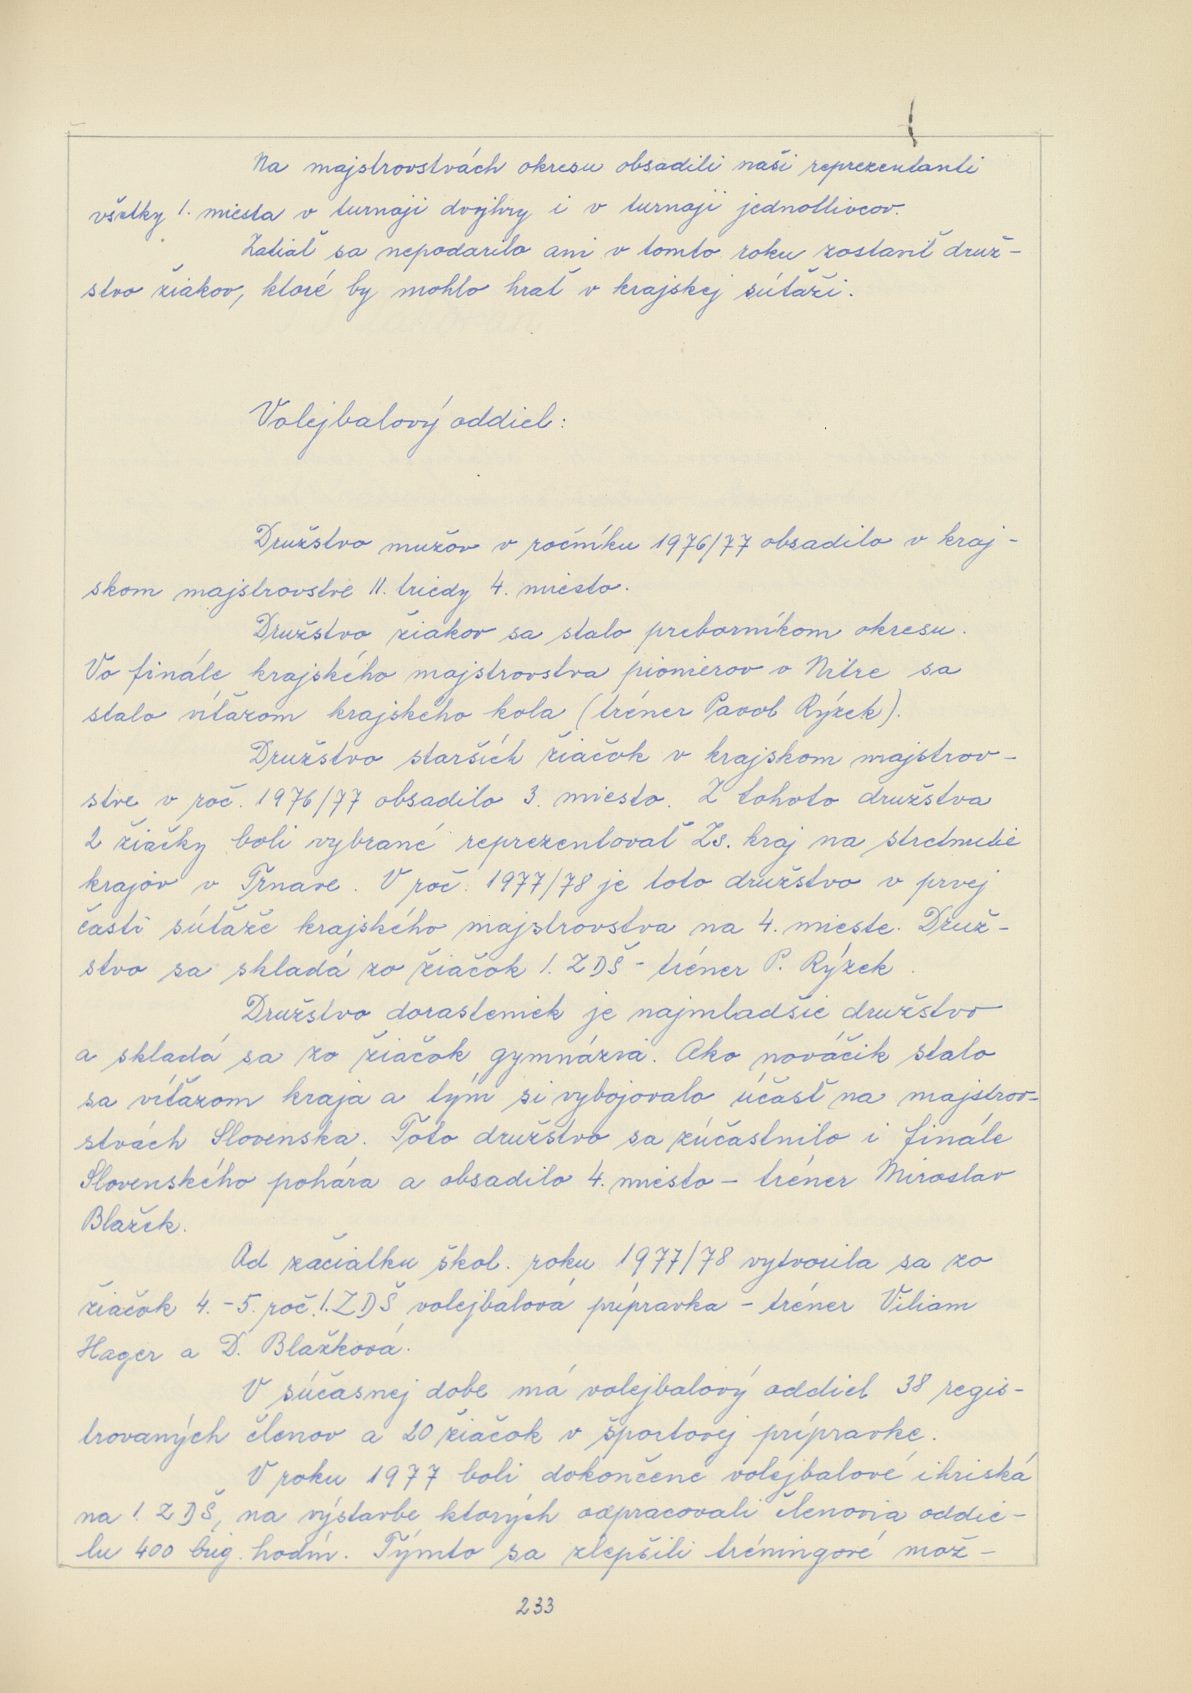 Na majstrovstvách okresu obsadili naši reprezentanti
všetky 1. miesta v turnaji dvojhry i v turnaji jednotlivcov.
Zatiaľ sa nepodarilo ani v tomto roku zostaviť druž-
stvo žiakov, ktoré by mohlo hrať v krajskej súťaži.
Volejbalový oddiel:
Družstvo mužov v ročníku 1976/77 obsadilo v kraj-
skom majstrovstve II. triedy 4. miesto.
Družstvo žiakov sa stalo preborníkom okresu.
Vo finále krajského majstrovstva pionierov v Nitre sa
stalo víťazom krajského kola (tréner Pavol Rýzek).
Družstvo starších žiačok v krajskom majstrov-
stve v roč. 1976/77 obsadilo 3. miesto. Z tohoto družstva
2 žiačky boli vybrané reprezentovať Zs. kraj na stretnutie
krajov v Trnave. V roč. 1977/78 je toto družstvo v prvej
časti súťaže krajského majstrovstva na 4. mieste. Druž-
stvo sa skladá zo žiačok 1. ZDŠ - tréner P. Rýzek.
Družstvo dorasteniek je najmladšie družstvo
a skladá sa zo žiačok gymnázia. Ako nováčik stalo
sa víťazom kraja a tým si vybojovalo účasť na majstrov-
stvách Slovenska. Toto družstvo sa zúčastnilo i finále
Slovenského pohára a obsadilo 4. miesto - tréner Miroslav
Blažek.
Od začiatku škol. roku 1977/78 vytvorila sa zo
žiačok 4. - 5. roč. 1. ZDŠ volejbalová prípravka - tréner Viliam
Hager a D. Blažková.
V súčasnej dobe má volejbalový oddiel 38 regis-
trovaných členov a 20 žiačok v športovej prípravke.
V roku 1977 boli dokončené volejbalové ihriská
na 1. ZDŠ, na výstavbe ktorých odpracovali členovia oddie-
lu 400 brig. hodín. Týmto sa zlepšili tréningové mož-
233